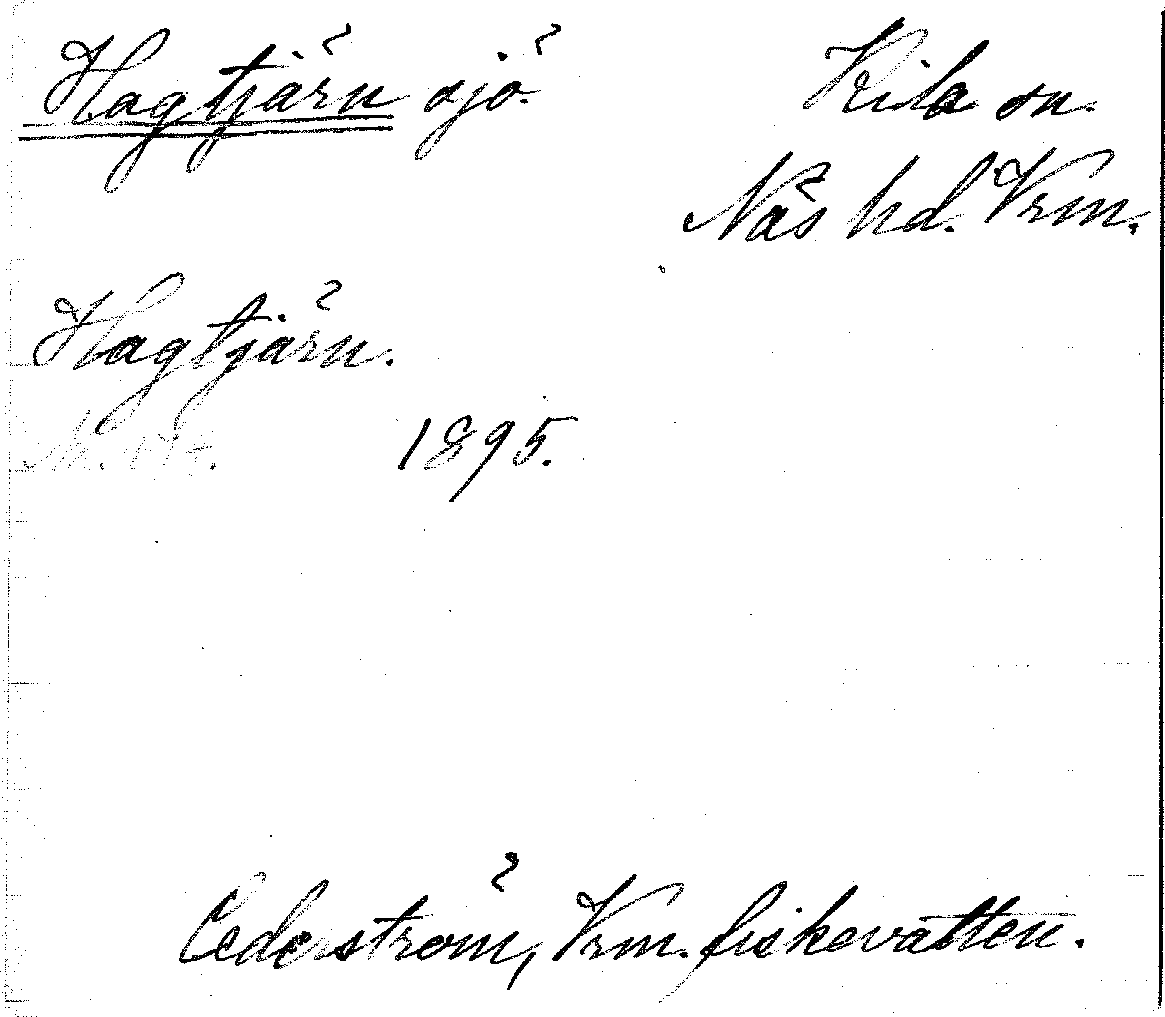 Hagtjärn sjö.
Kila sn.
Näs hd. Vrm.
Hagtjärn.
1895.
Cederström, Vrm. fiskevatten.